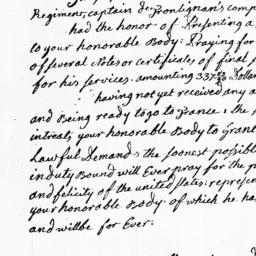 Regiment, captain De Fronlignari's comp
had the honor of Presenting a
to your honorable Body: Praying for
of several Notes or certificates of final
for his services. amounting 337 Dollar
having not yet received any a
and Being ready to go to France: the
intreat, your honorable Body to Grant
Lawful Demand: the soonest possible
in duty Bound will Ever pray for the p
and felicity of the united states: represen
your honorable Body: of which he ha
and will be for Ever: